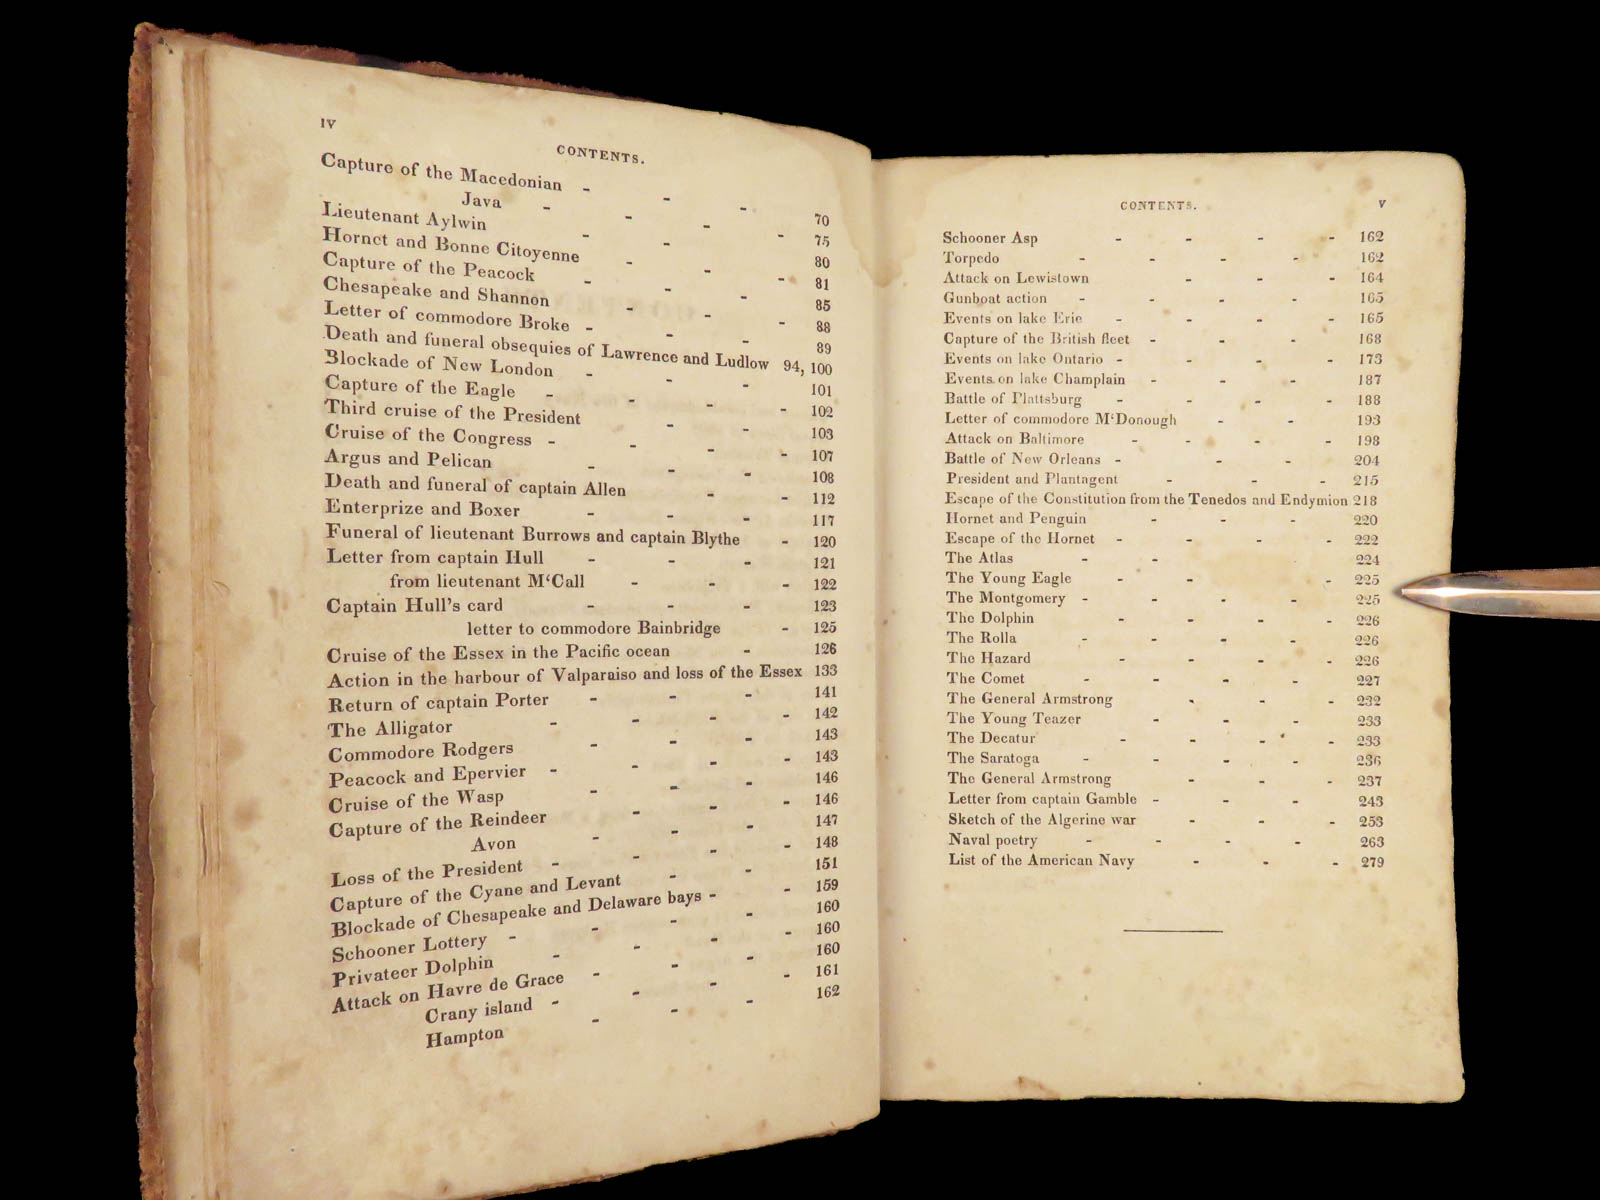 IV
CONTENTS.
Capture of the Macedonian - - - 70
Java - - - - 75
Lieutenant Aylwin - - - 80
Hornet and Bonne Citoyenne - - - 81
Capture of the Peacock - - - 85
Chesapeake and Shannon - - - 88
Letter of commodore Broke - - - 89
Death and funeral obsequies of Lawrence and Ludlow 94, 100
Blockade of New London - - - 101
Capture of the Eagle - - - - 102
Third cruise of the President - - 103
Cruise of the Congress - - - - 107
Argus and Pelican - - - 108
Death and funeral of captain Allen - - 112
Enterprize and Boxer - - - 117
Funeral of lieutenant Burrows and captain Blythe - 120
Letter from captain Hull - - - 121
from lieutenant M'Call - - - 122
Captain Hull's card - - - 123
letter to commodore Bainbridge - 125
Cruise of the Essex in the Pacific ocean - 126
Action in the harbour of Valparaiso and loss of the Essex 133
Return of captain Porter - - - 141
The Alligator - - - - 142
Commodore Rodgers - - - 143
Peacock and Epervier - - - - 143
Cruise of the Wasp - - - 146
Capture of the Reindeer - - - 146
Avon - - - 147
Loss of the President - - - - 148
Capture of the Cyane and Levant - - 151
Blockade of Chesapeake and Delaware bays - - 159
Schooner Lottery - - - - 160
Privateer Dolphin - - - - 160
Attack on Havre de Grace - - - 160
Crany island - - - - 161
Hampton - - - 162
CONTENTS.
V
Schooner Asp - - - - 162
Torpedo - - - - 162
Attack on Lewistown - - - 164
Gunboat action - - - - 165
Events on lake Erie - - - - 165
Capture of the British fleet - - - 168
Events on lake Ontario - - - - 173
Events on lake Champlain - - - 187
Battle of Plattsburg - - - - 188
Letter of commodore M'Donough - - 193
Attack on Baltimore - - - - 198
Battle of New Orleans - - - 204
President and Plantagent - - - 215
Escape of the Constitution from the Tenedos and Endymion 218
Hornet and Penguin - - - 220
Escape of the Hornet - - - - 222
The Atlas - - 224
The Young Eagle - - - 225
The Montgomery - - - - 225
The Dolphin - - - - 226
The Rolla - - - - 226
The Hazard - - - - 226
The Comet - - - - 227
The General Armstrong - - - 232
The Young Teazer - - - 233
The Decatur - - - - 233
The Saratoga - - - - 236
The General Armstrong - - - 237
Letter from captain Gamble - - - 243
Sketch of the Algerine war - - - 253
Naval poetry - - - - 263
List of the American Navy - - - 279